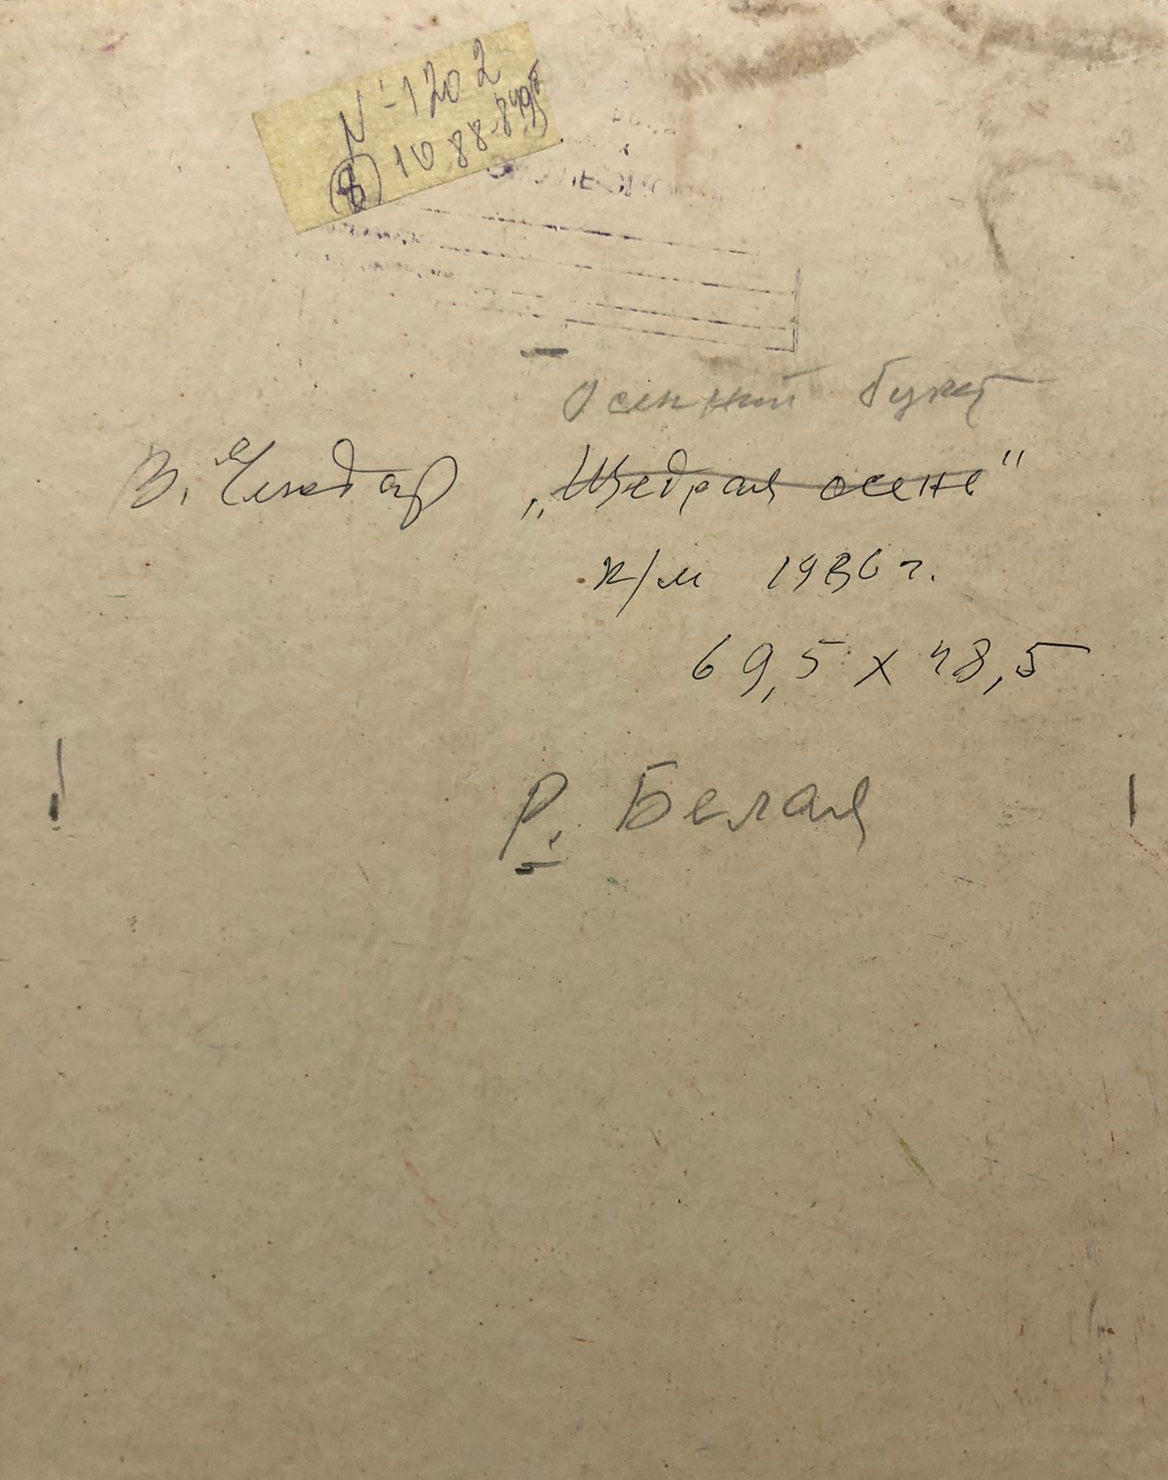 N-1202
1088-
Осенний букет
В. Чекдар „Щедрая осень"
к/м 1986 г.
69,5 х 48,5
Р. Белая